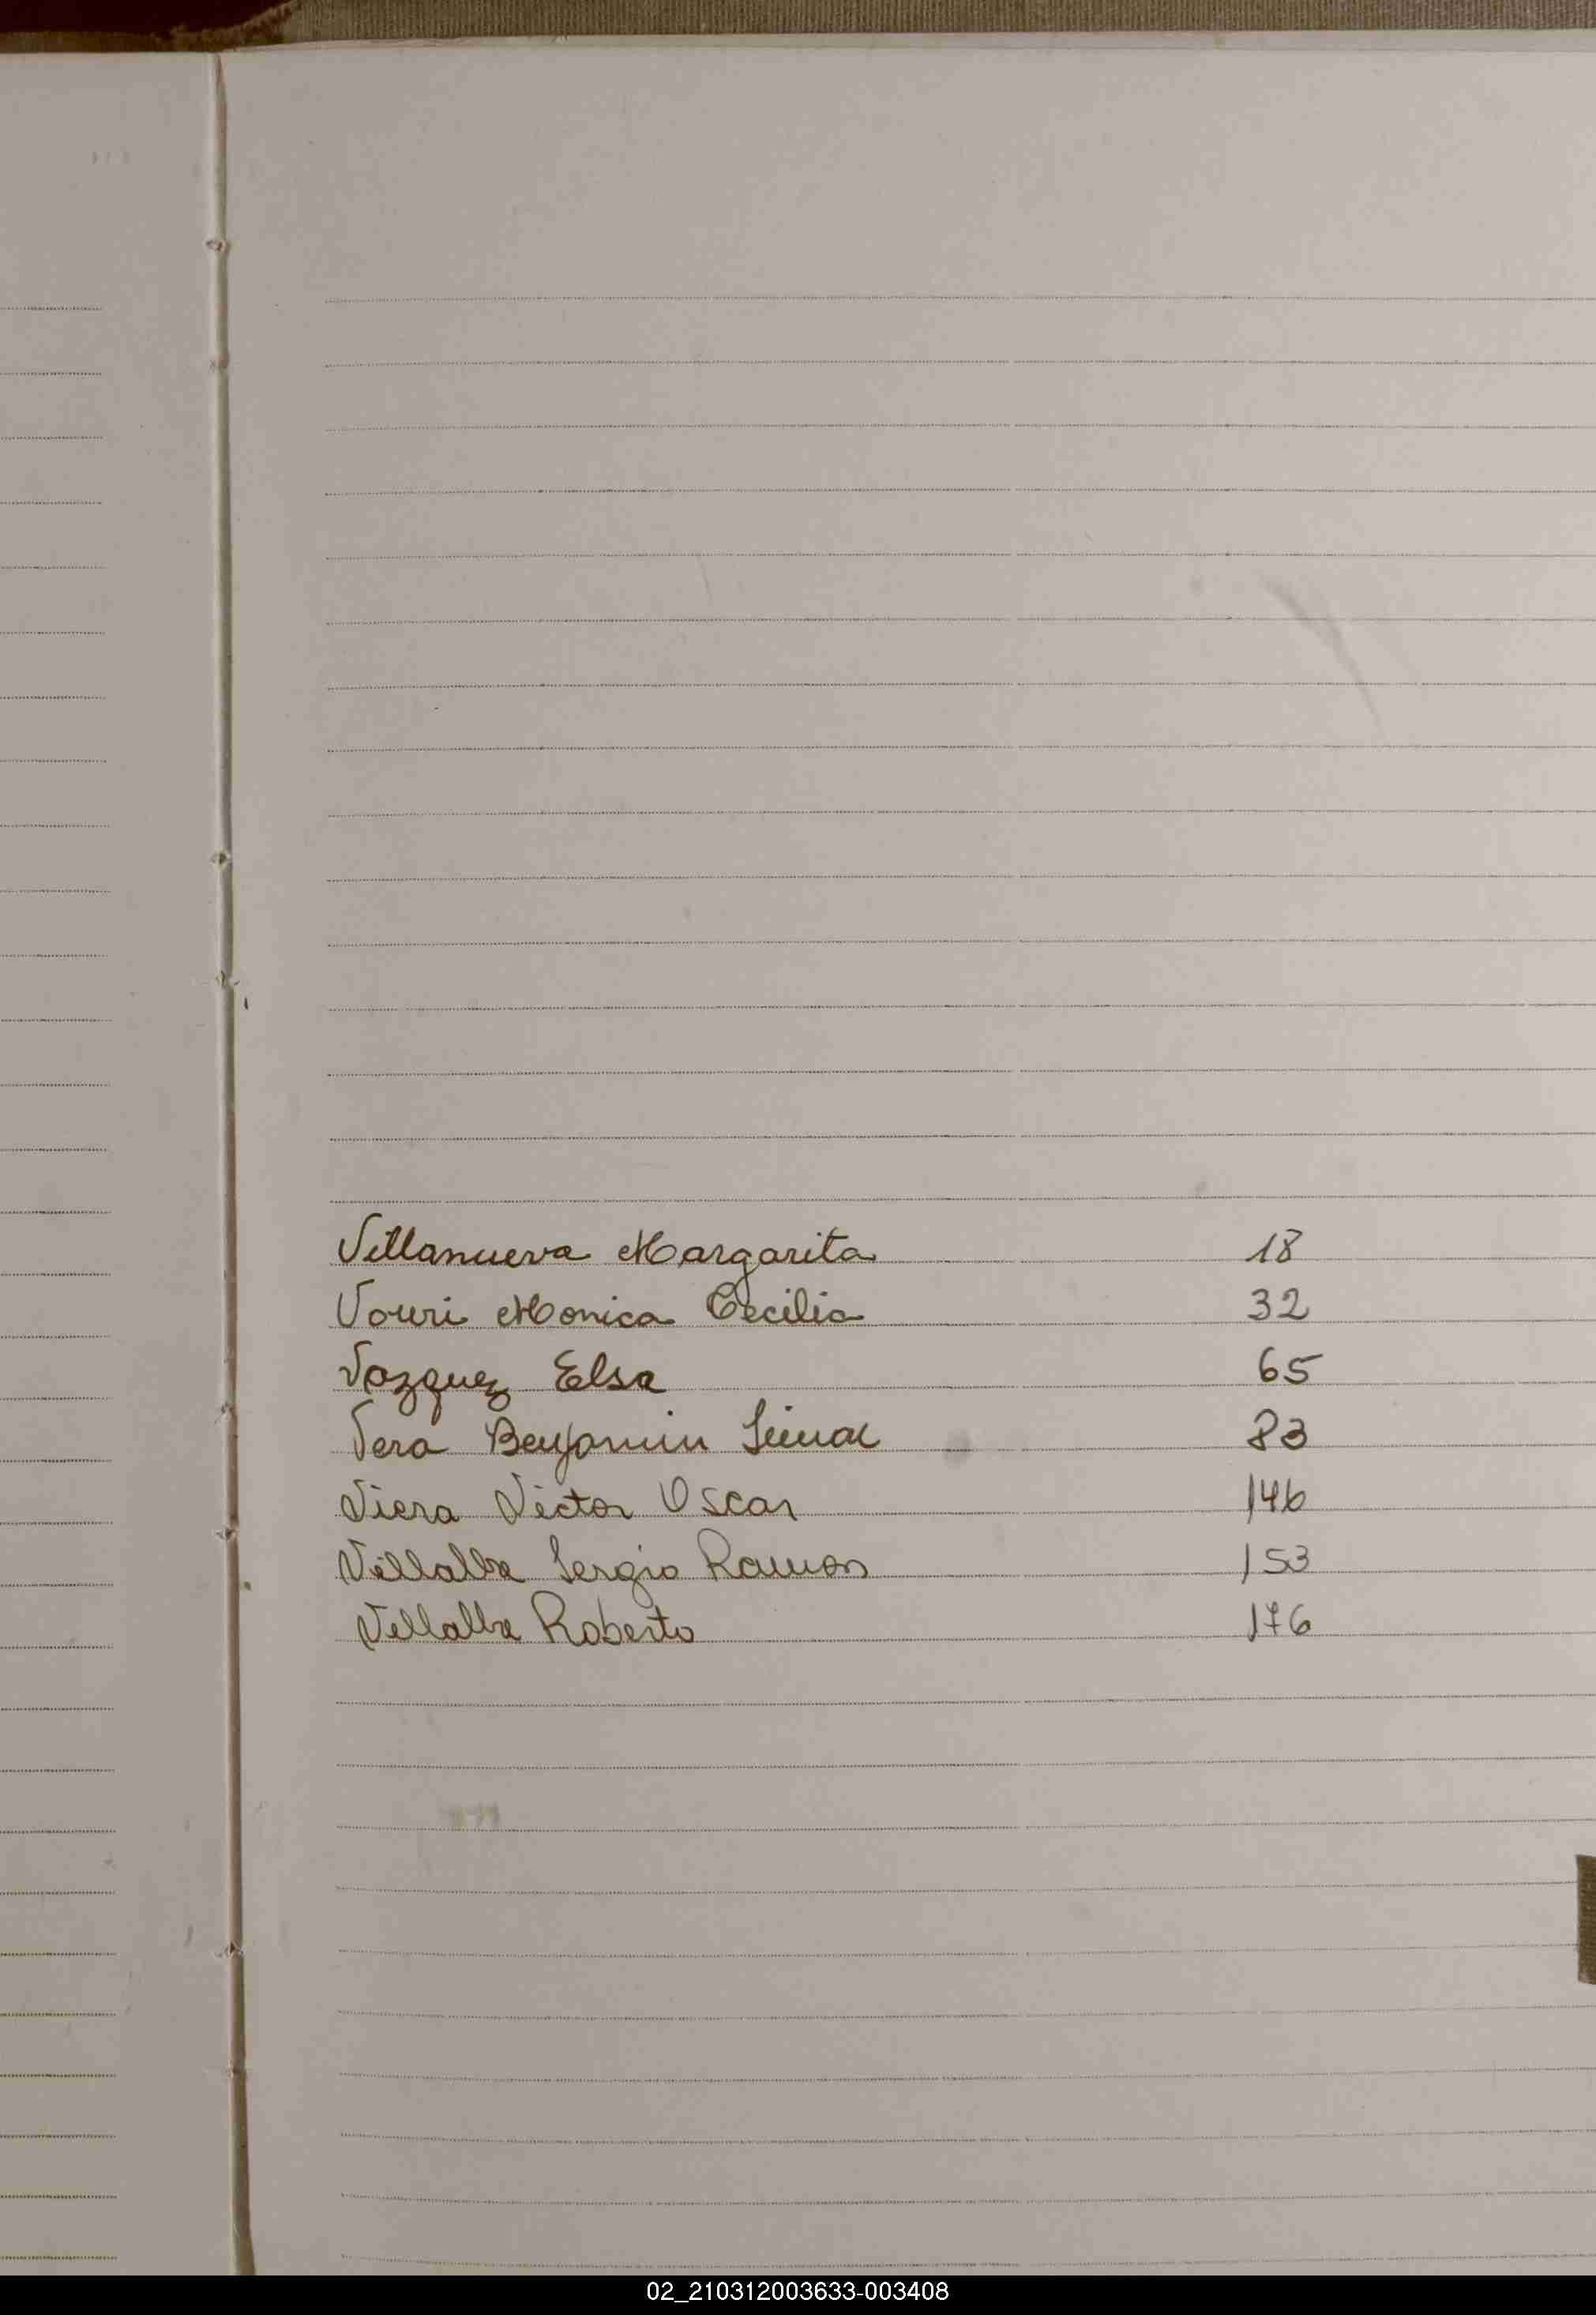 Villanueva Margarita 18
Vouri Monica Cecilia 32
Vazquez Elsa 65
Vera Benjamin 83
Viera Victor Oscar 146
Villalba Sergio Ramon 153
Villalba Roberto 176
02_210312003633-003408